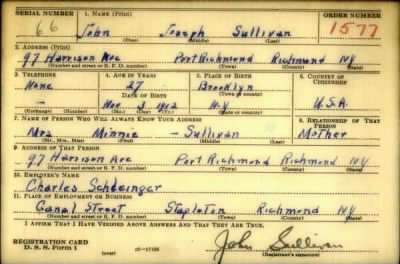 SERIAL NUMBER 1. NAME (Print) ORDER NUMBER
66 John Joseph Sullivan 1577
(First) (Middle) (Last)
2. ADDRESS (Print)
97 Harrison Ave Port Richmond Richmond NY
(Number and street or R. F. D. number) (Town) (County) (State)
3. TELEPHONE 4. AGE IN YEARS 5. PLACE OF BIRTH 6. COUNTRY OF CITIZENSHIP
None 27 Brooklyn
DATE OF BIRTH (Town or county)
- Nov 3 1912 N.Y U.S.A.
(Exchange) (Number) (Mo.) (Day) (Yr.) (State or country)
7. NAME OF PERSON WHO WILL ALWAYS KNOW YOUR ADDRESS 8. RELATIONSHIP OF THAT PERSON
Mrs Minnie - Sullivan Mother
(Mr., Mrs., Miss) (First) (Middle) (Last)
9. ADDRESS OF THAT PERSON
97 Harrison Ave Port Richmond Richmond NY
(Number and street or R. F. D. number) (Town) (County) (State)
10. EMPLOYER'S NAME
Charles
11. PLACE OF EMPLOYMENT OR BUSINESS
Canal Street Stapleton Richmond NY
(Number and street or R. F. D. number) (Town) (County) (State)
I AFFIRM THAT I HAVE VERIFIED ABOVE ANSWERS AND THAT THEY ARE TRUE.
REGISTRATION CARD
D. S. S. Form 1 (over) 16-17105 John Sullivan
(Registrant's signature)